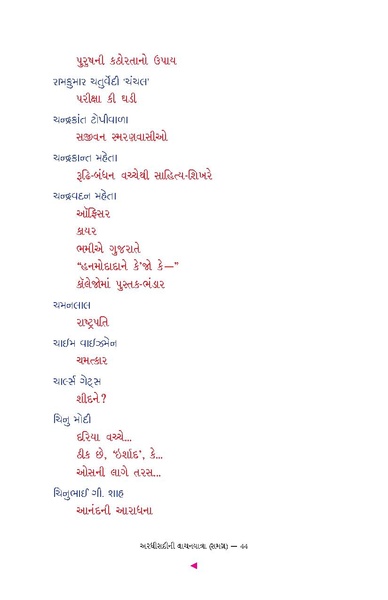 પુરુષની કઠોરતાનો ઉપાય
રામકુમાર ચતુર્વેદી 'ચંચલ'
પરીક્ષા કી ઘડી
ચન્દ્રકાંત ટોપીવાળા
સજીવન સ્મરણવાસીઓ
ચન્દ્રકાન્ત મહેતા
રૂઢિ-બંધન વચ્ચેથી સાહિત્ય-શિખરે
ચન્દ્રવદન મહેતા
ઑફિસર
કાયર
ભમીએ ગુજરાતે
“હનમોદાદાને કે'જો કે—”
કૉલેજોમાં પુસ્તક-ભંડાર
ચમનલાલ
રાષ્ટ્રપતિ
ચાઈમ વાઈઝમેન
ચમત્કાર
ચાર્લ્સ ગેટ્સ
શીદને?
ચિનુ મોદી
દરિયા વચ્ચે...
ઠીક છે, ‘ઇર્શાદ’, કે...
ઓસની લાગે તરસ...
ચિનુભાઈ ગી. શાહ
આનંદની આરાધના
અરધીસદીની વાચનયાત્રા (સમગ્ર) — 44